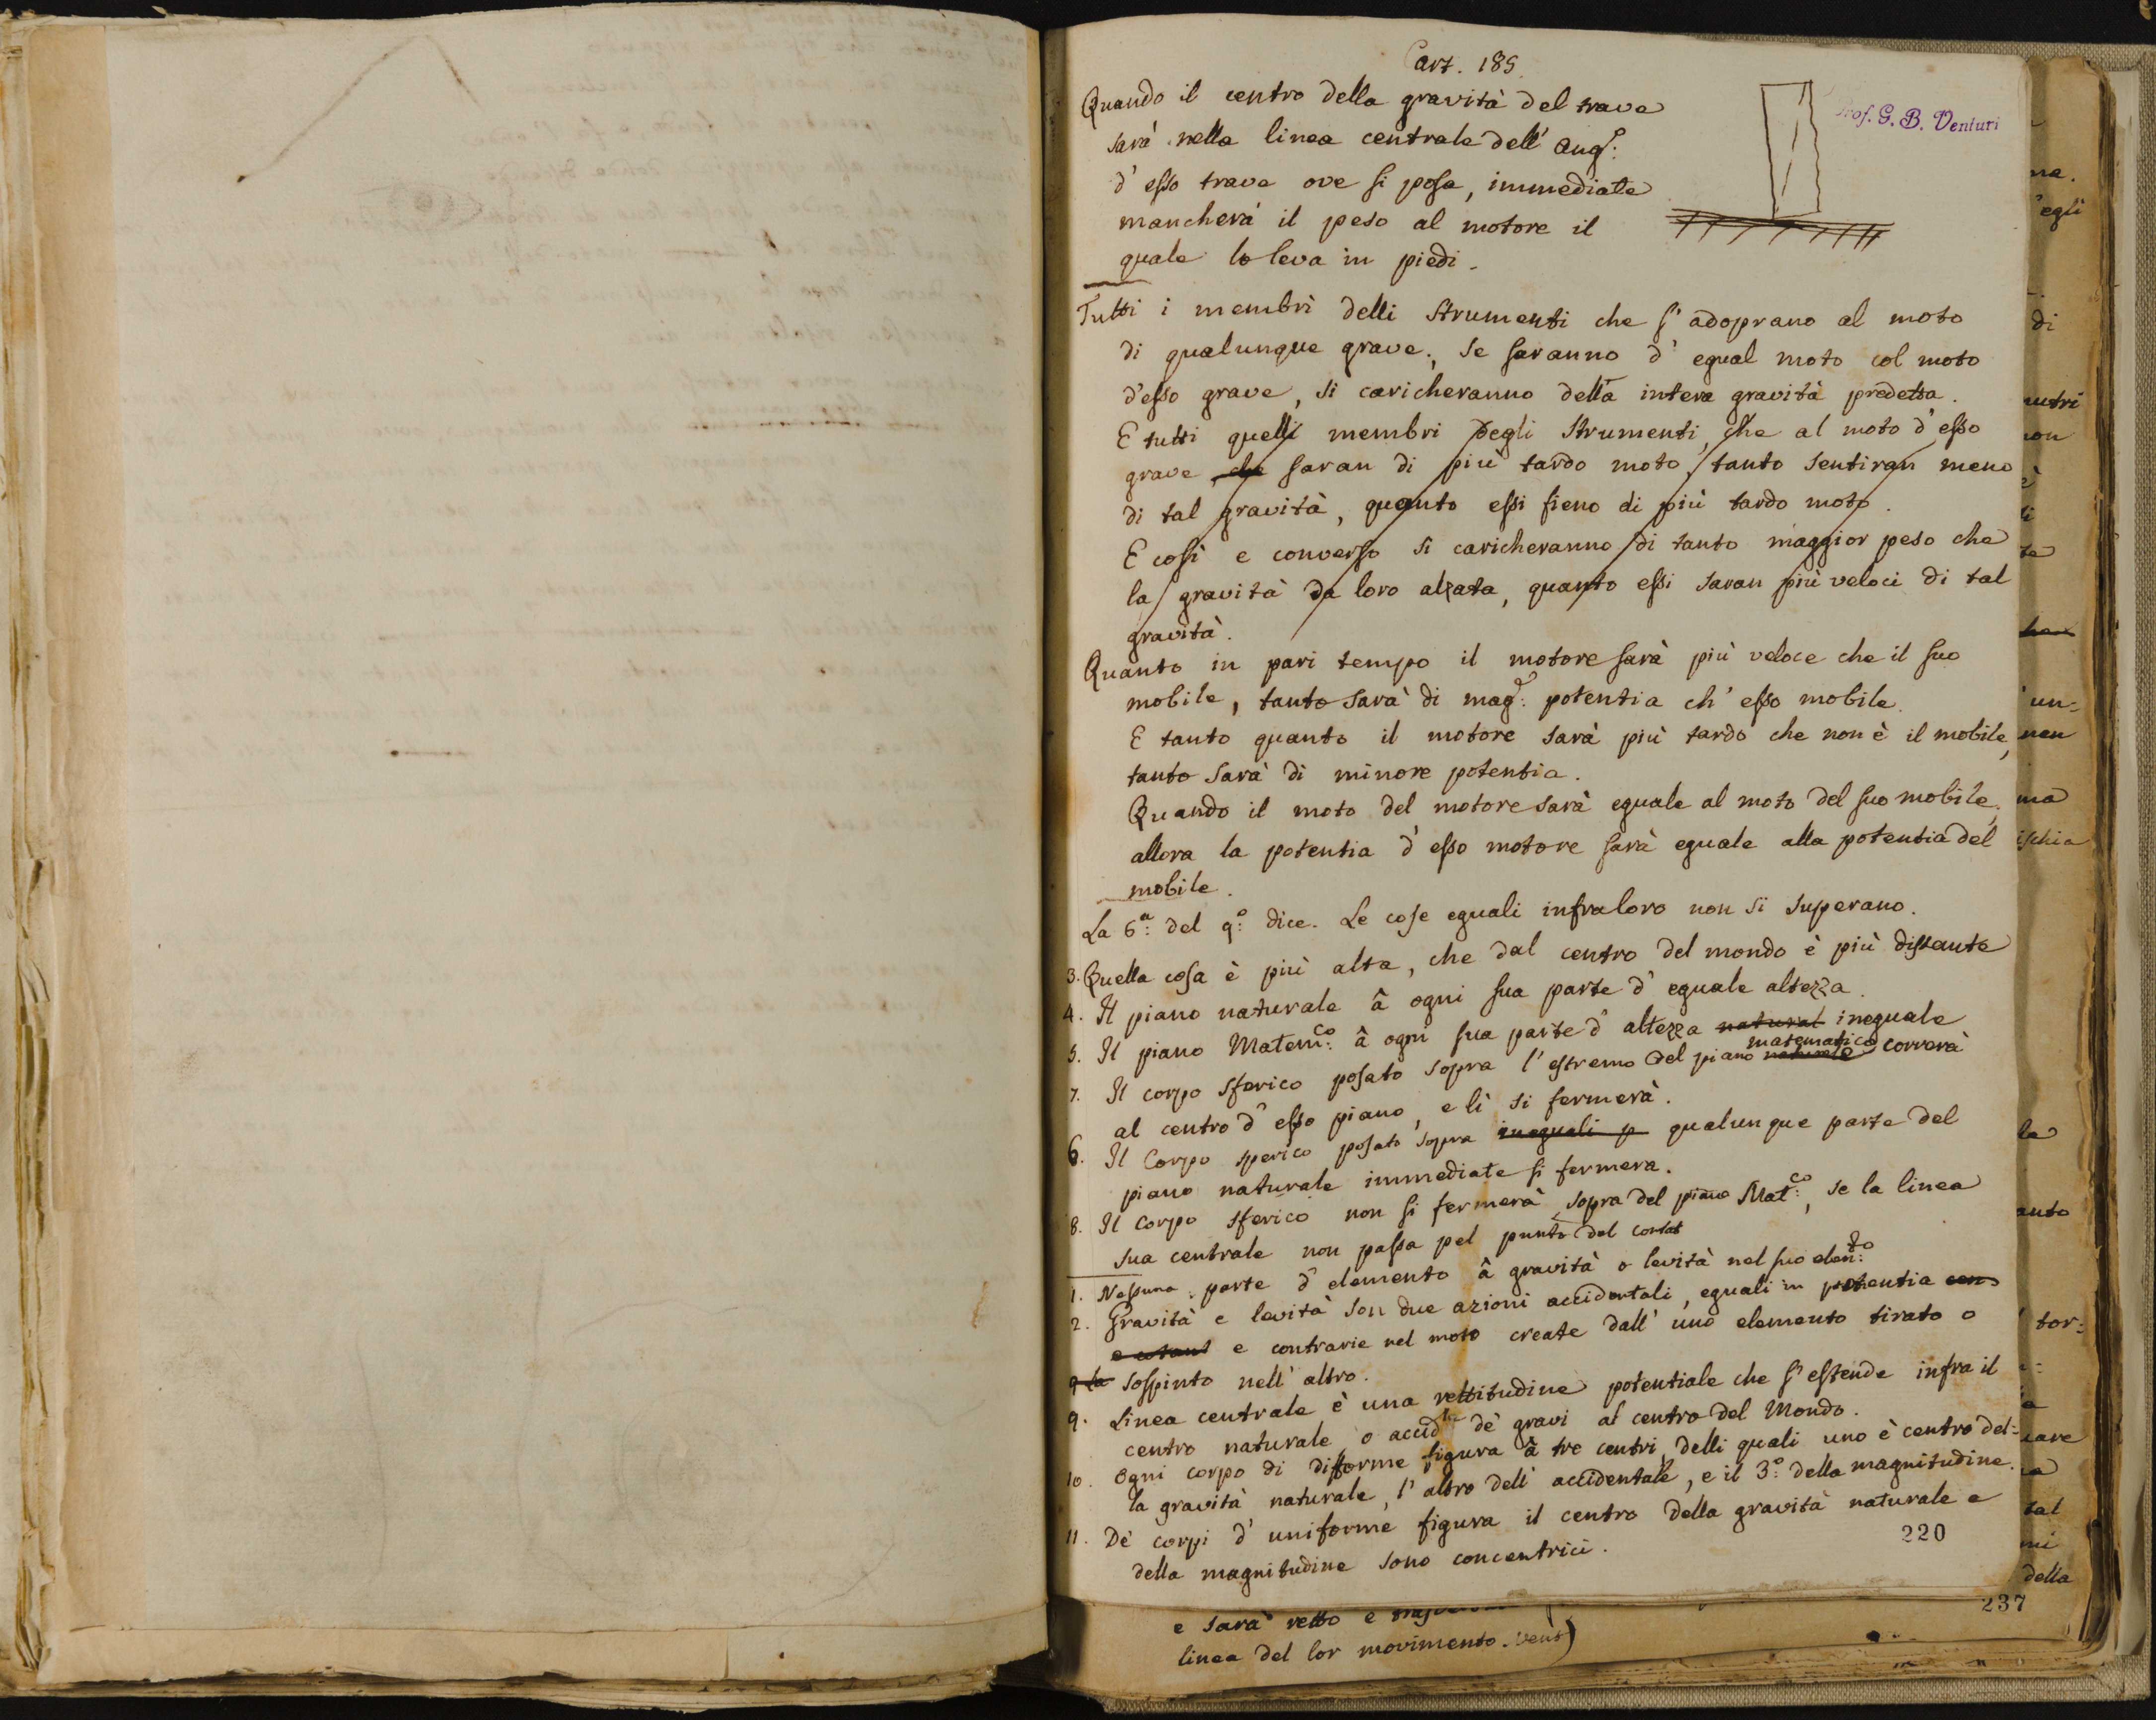 Cart. 185
Prof. G. B. Venturi
Quando il centro della gravità del trave
sarà nella linea centrale dell' Ang.º
d' esso trave ove si posa, immediate
mancherà il peso al motore il
quale lo leva in piedi.
Tutti i membri delli strumenti che s' adoprano al moto
di qualunque grave, se saranno d' egual moto col moto
d'esso grave, si caricheranno della intera gravità predetta.
E tutti quelli membri degli strumenti, che al moto d' esso
grave, che saran di più tardo moto, tanto sentiran meno
di tal gravità, quanto essi fieno di più tardo moto.
E così e converso si caricheranno di tanto maggior peso che
la gravità da loro alzata, quanto essi saran più veloci di tal
gravità.
Quanto in pari tempo il motore sarà più veloce che il suo
mobile, tanto sarà di mag.r potentia ch' esso mobile.
E tanto quanto il motore sarà più tardo che non è il mobile,
tanto sarà di minore potentia.
Quando il moto del motore sarà eguale al moto del suo mobile,
allora la potentia d' esso motore sarà eguale alla potentia del
mobile.
La 6.a del 9.o dice. Le cose eguali infra loro non si superano.
3. Quella cosa è più alta, che dal centro del mondo è più distante
4. Il piano naturale â ogni sua parte d' eguale altezza.
5. Il piano Matem.co â ogni sua parte d' altezza natural ineguale
7. Il corpo sferico posato sopra l' estremo del piano naturale matematico correrà
al centro d' esso piano, e lì si fermerà.
6. Il Corpo sperico posato sopra ineguali p qualunque parte del
piano naturale immediate si fermera.
8. Il Corpo sferico non si fermerà sopra del piano Mat.co, se la linea
sua centrale non passa pel punto del contat
1. Nessuna parte d' elemento â gravità o levità nel suo elem.to
2. Gravità e levità son due azioni accidentali, eguali in potentia con
e contrarie nel moto create dall' uno elemento tirato o
9 La sospinto nell' altro.
9. Linea centrale è una rettitudine potentiale che s' estende infra il
centro naturale o accid.le de' gravi al centro del Mondo.
10. Ogni corpo di difforme figura â tre centri, delli quali uno è centro del-
la gravità naturale, l' altro dell' accidentale, e il 3.o della magnitudine.
11. De' corpi d' uniforme figura il centro della gravità naturale e
della magnitudine sono concentrici.
220
e sarà retto e
linea del lor movimento. Vent)
237
egli
di
non
te
un=
non
ma
ischia
la
tor=
tal
mi
della